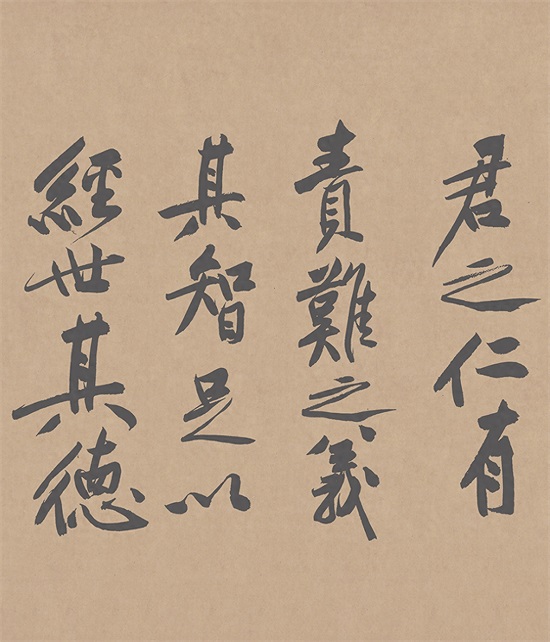 君之仁有
責難之義
其智足以
經世其德